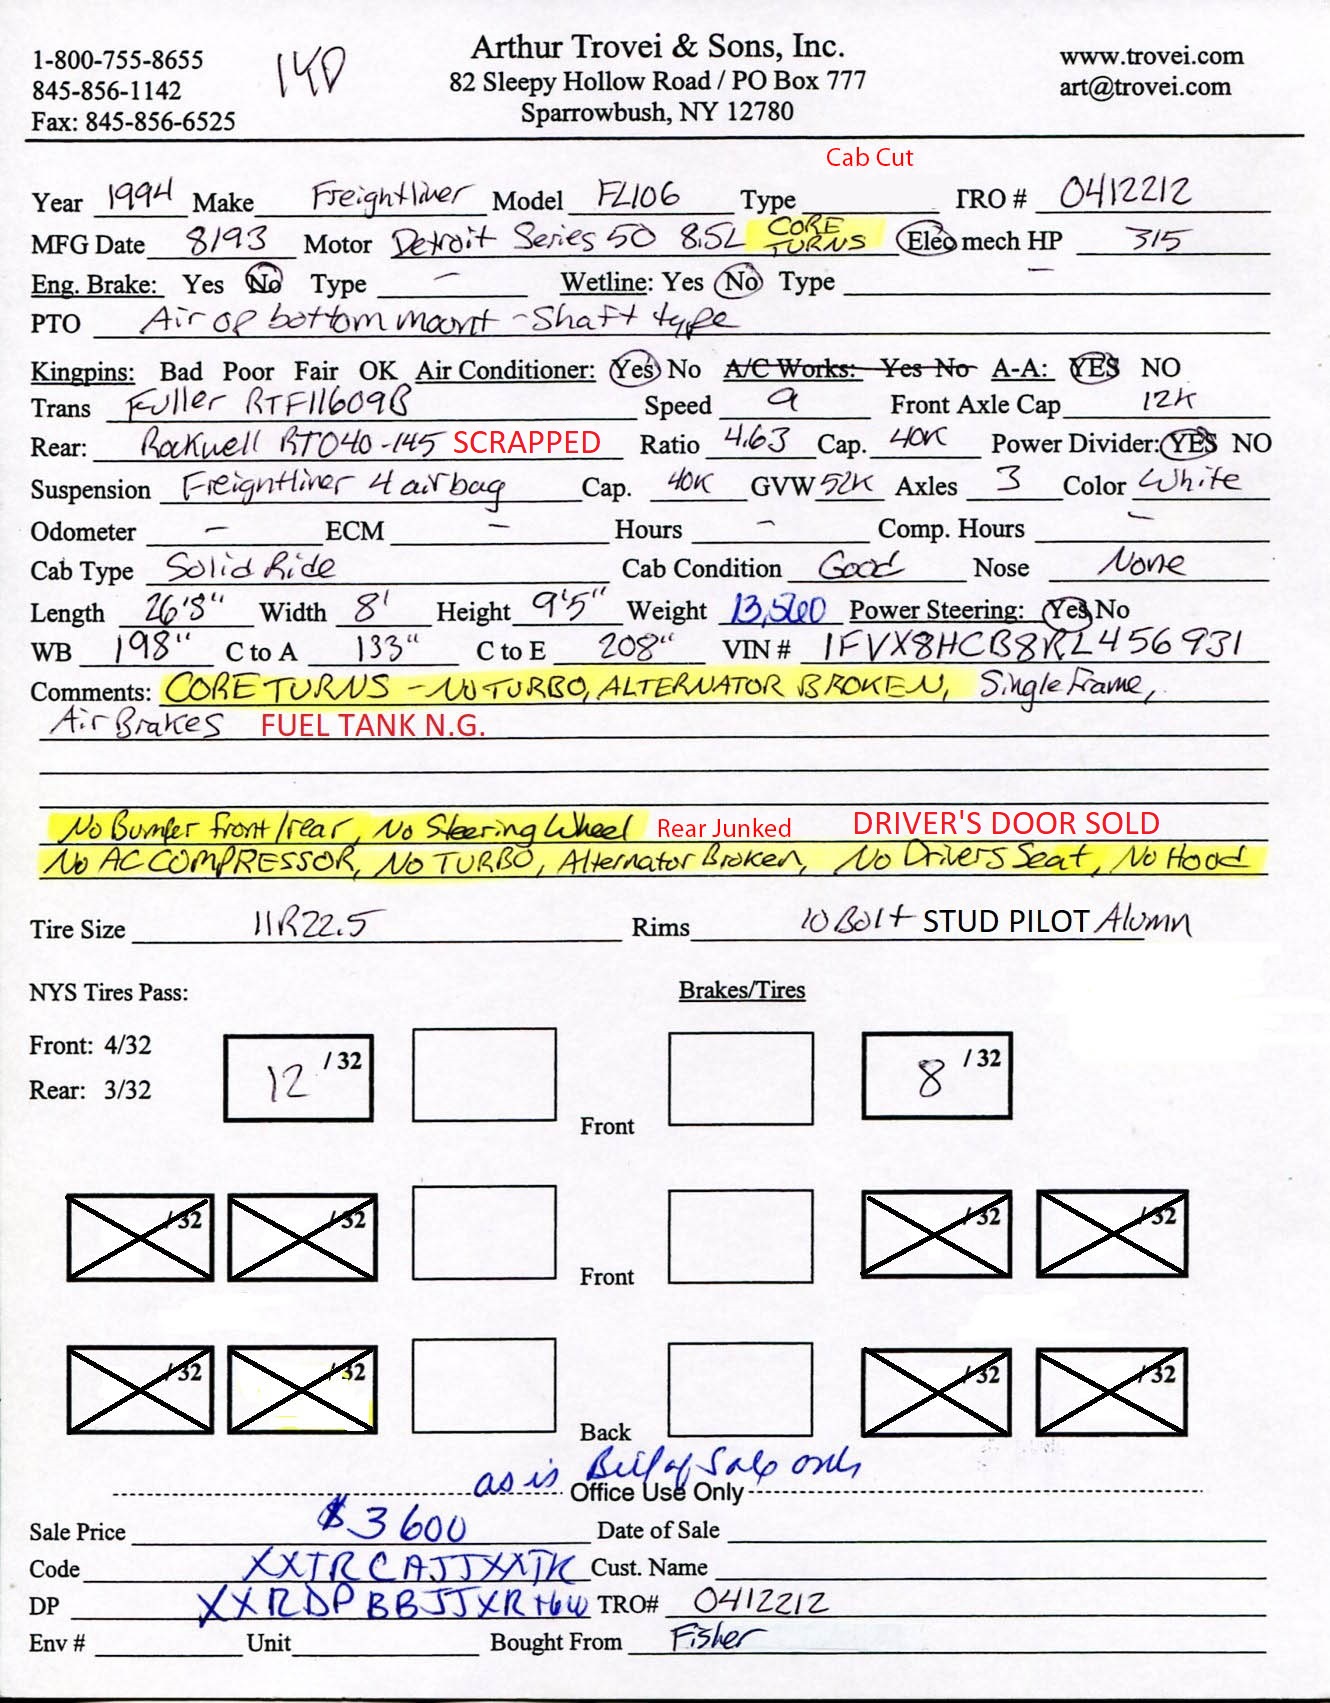 1-800-755-8655
845-856-1142
Fax: 845-856-6525
140
Arthur Trovei & Sons, Inc.
82 Sleepy Hollow Road / PO Box 777
Sparrowbush, NY 12780
www.trovei.com
art@trovei.com
Cab Cut
Year 1994 Make Freightliner Model FL106 Type TRO # 0412212
MFG Date 8/93 Motor Detroit Series 50 8.5L CORE TURNS Elec mech HP 315
Eng. Brake: Yes No Type - Wetline: Yes No Type -
PTO Air op bottom mount - Shaft type
Kingpins: Bad Poor Fair OK Air Conditioner: Yes No A/C Works: Yes No A-A: YES NO
Trans Fuller RTF11609B Speed 9 Front Axle Cap 12K
Rear: Rockwell RT040-145 SCRAPPED Ratio 4.63 Cap. 40K Power Divider: YES NO
Suspension Freightliner 4 airbag Cap. 40K GVW 52K Axles 3 Color White
Odometer - ECM - Hours - Comp. Hours -
Cab Type Solid Ride Cab Condition Good Nose None
Length 26'8" Width 8' Height 9'5" Weight 13,560 Power Steering: Yes No
WB 198" C to A 133" C to E 208" VIN # 1FVX8HCB8RL456931
Comments: CORE TURNS - NO TURBO, ALTERNATOR BROKEN, Single Frame,
Air Brakes FUEL TANK N.G.
No Bumper front/rear, No Steering Wheel Rear Junked DRIVER'S DOOR SOLD
No AC COMPRESSOR, No TURBO, Alternator Broken, No Drivers Seat, No Hood
Tire Size 11R22.5 Rims 10 Bolt STUD PILOT Alumn
NYS Tires Pass: Brakes/Tires
Front: 4/32 12 /32 8 /32
Rear: 3/32
Front
/32 /32 /32 /32
Front
/32 /32 /32 /32
Back
as is Bill of Sale only
Office Use Only
Sale Price $3600 Date of Sale
Code XXTRCAJJXXTK Cust. Name
DP TRO# 0412212
Env # Unit Bought From Fisher